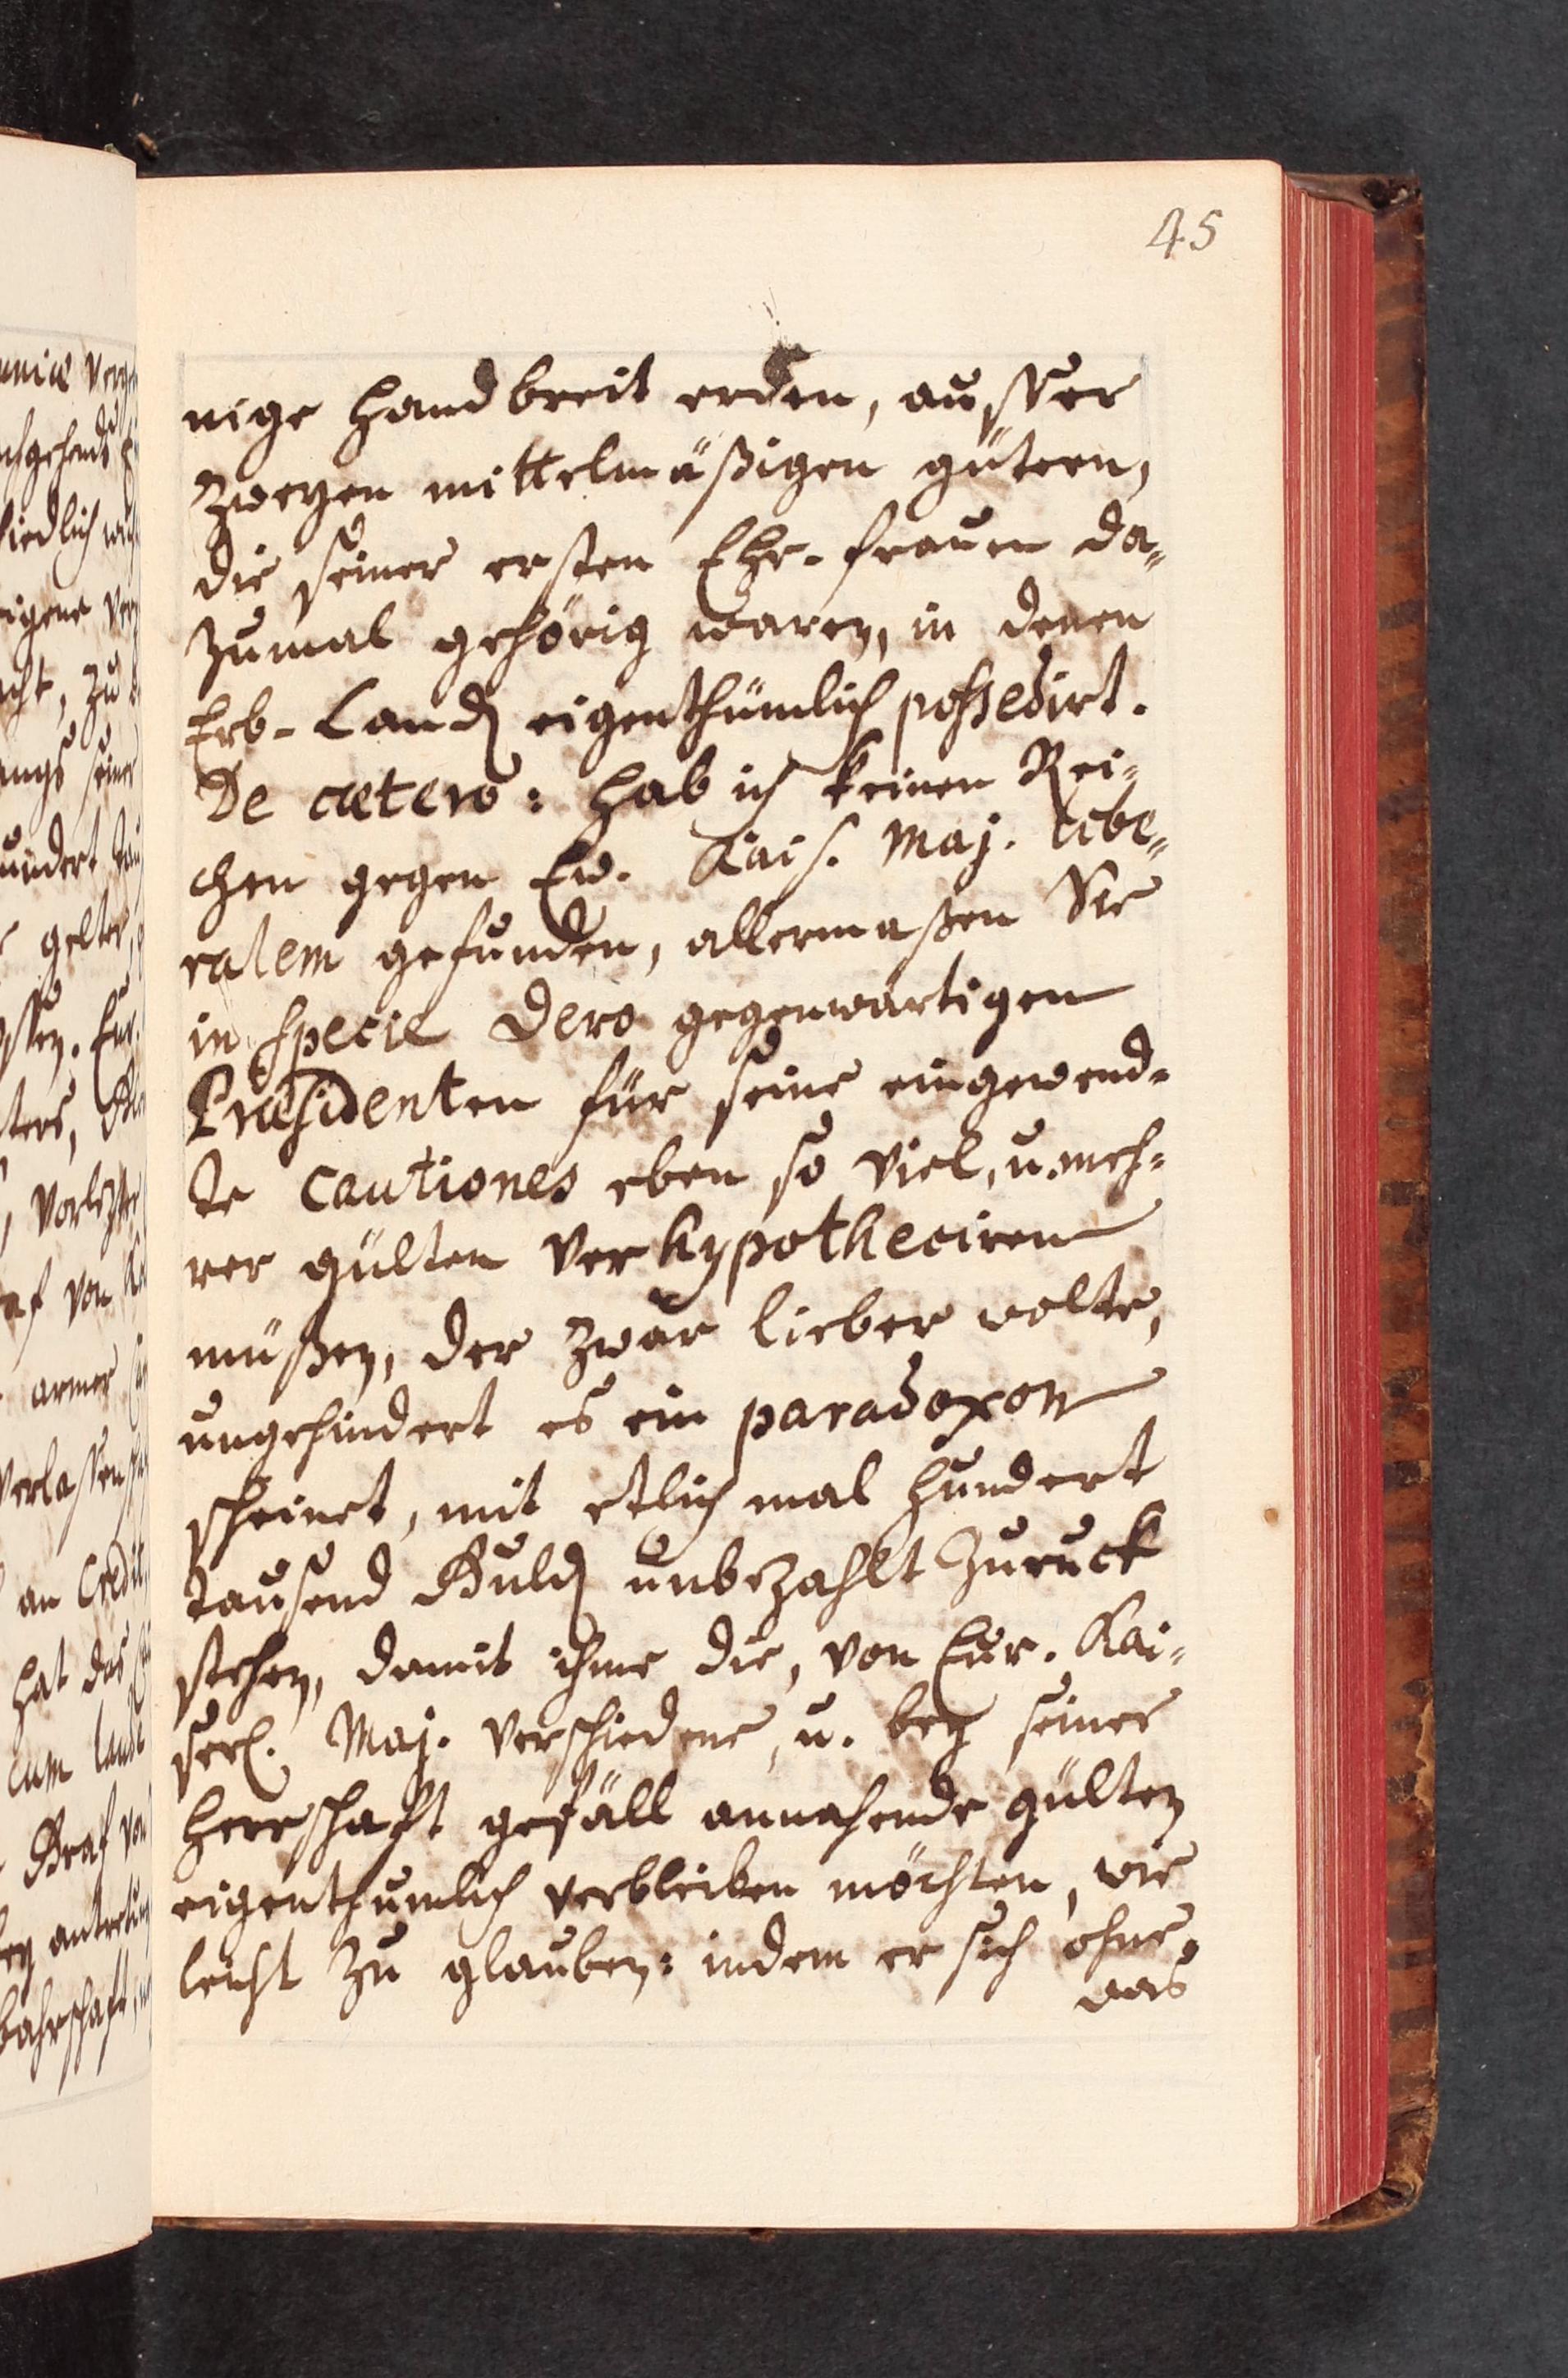 45
nige handbreit erden, ausser
zweyen mittelmäßigen gütern,
die seiner ersten Ehe-frauen da„
zumal gehörig waren, in denen
Erb-Landen eigenthümlich possedirt.
De cætero: hab ich keinen Rei„
chen gegen Ew. Kais. Maj. libe„
ralem gefunden, allermaßen Sie
in specie Dero gegenwartigen
Præsidenten für seine eingewend„
te cautiones eben so viel, u. meh„
rer gülten verhypotheciren
müßen, der zwar lieber wolte,
ungehindert es ein paradoxon
scheinet, mit etlich mal hundert
tausend Gulden unbezahlt zuruck
stehen, damit ihme die, von Eur. Kai„
serl. Maj. verschiedene, u. bey seiner
herrschaft gefäll annahende gülten
eigenthumlich verbleiben möchten, wie
leicht zu glauben: indem er sich ohne„
das